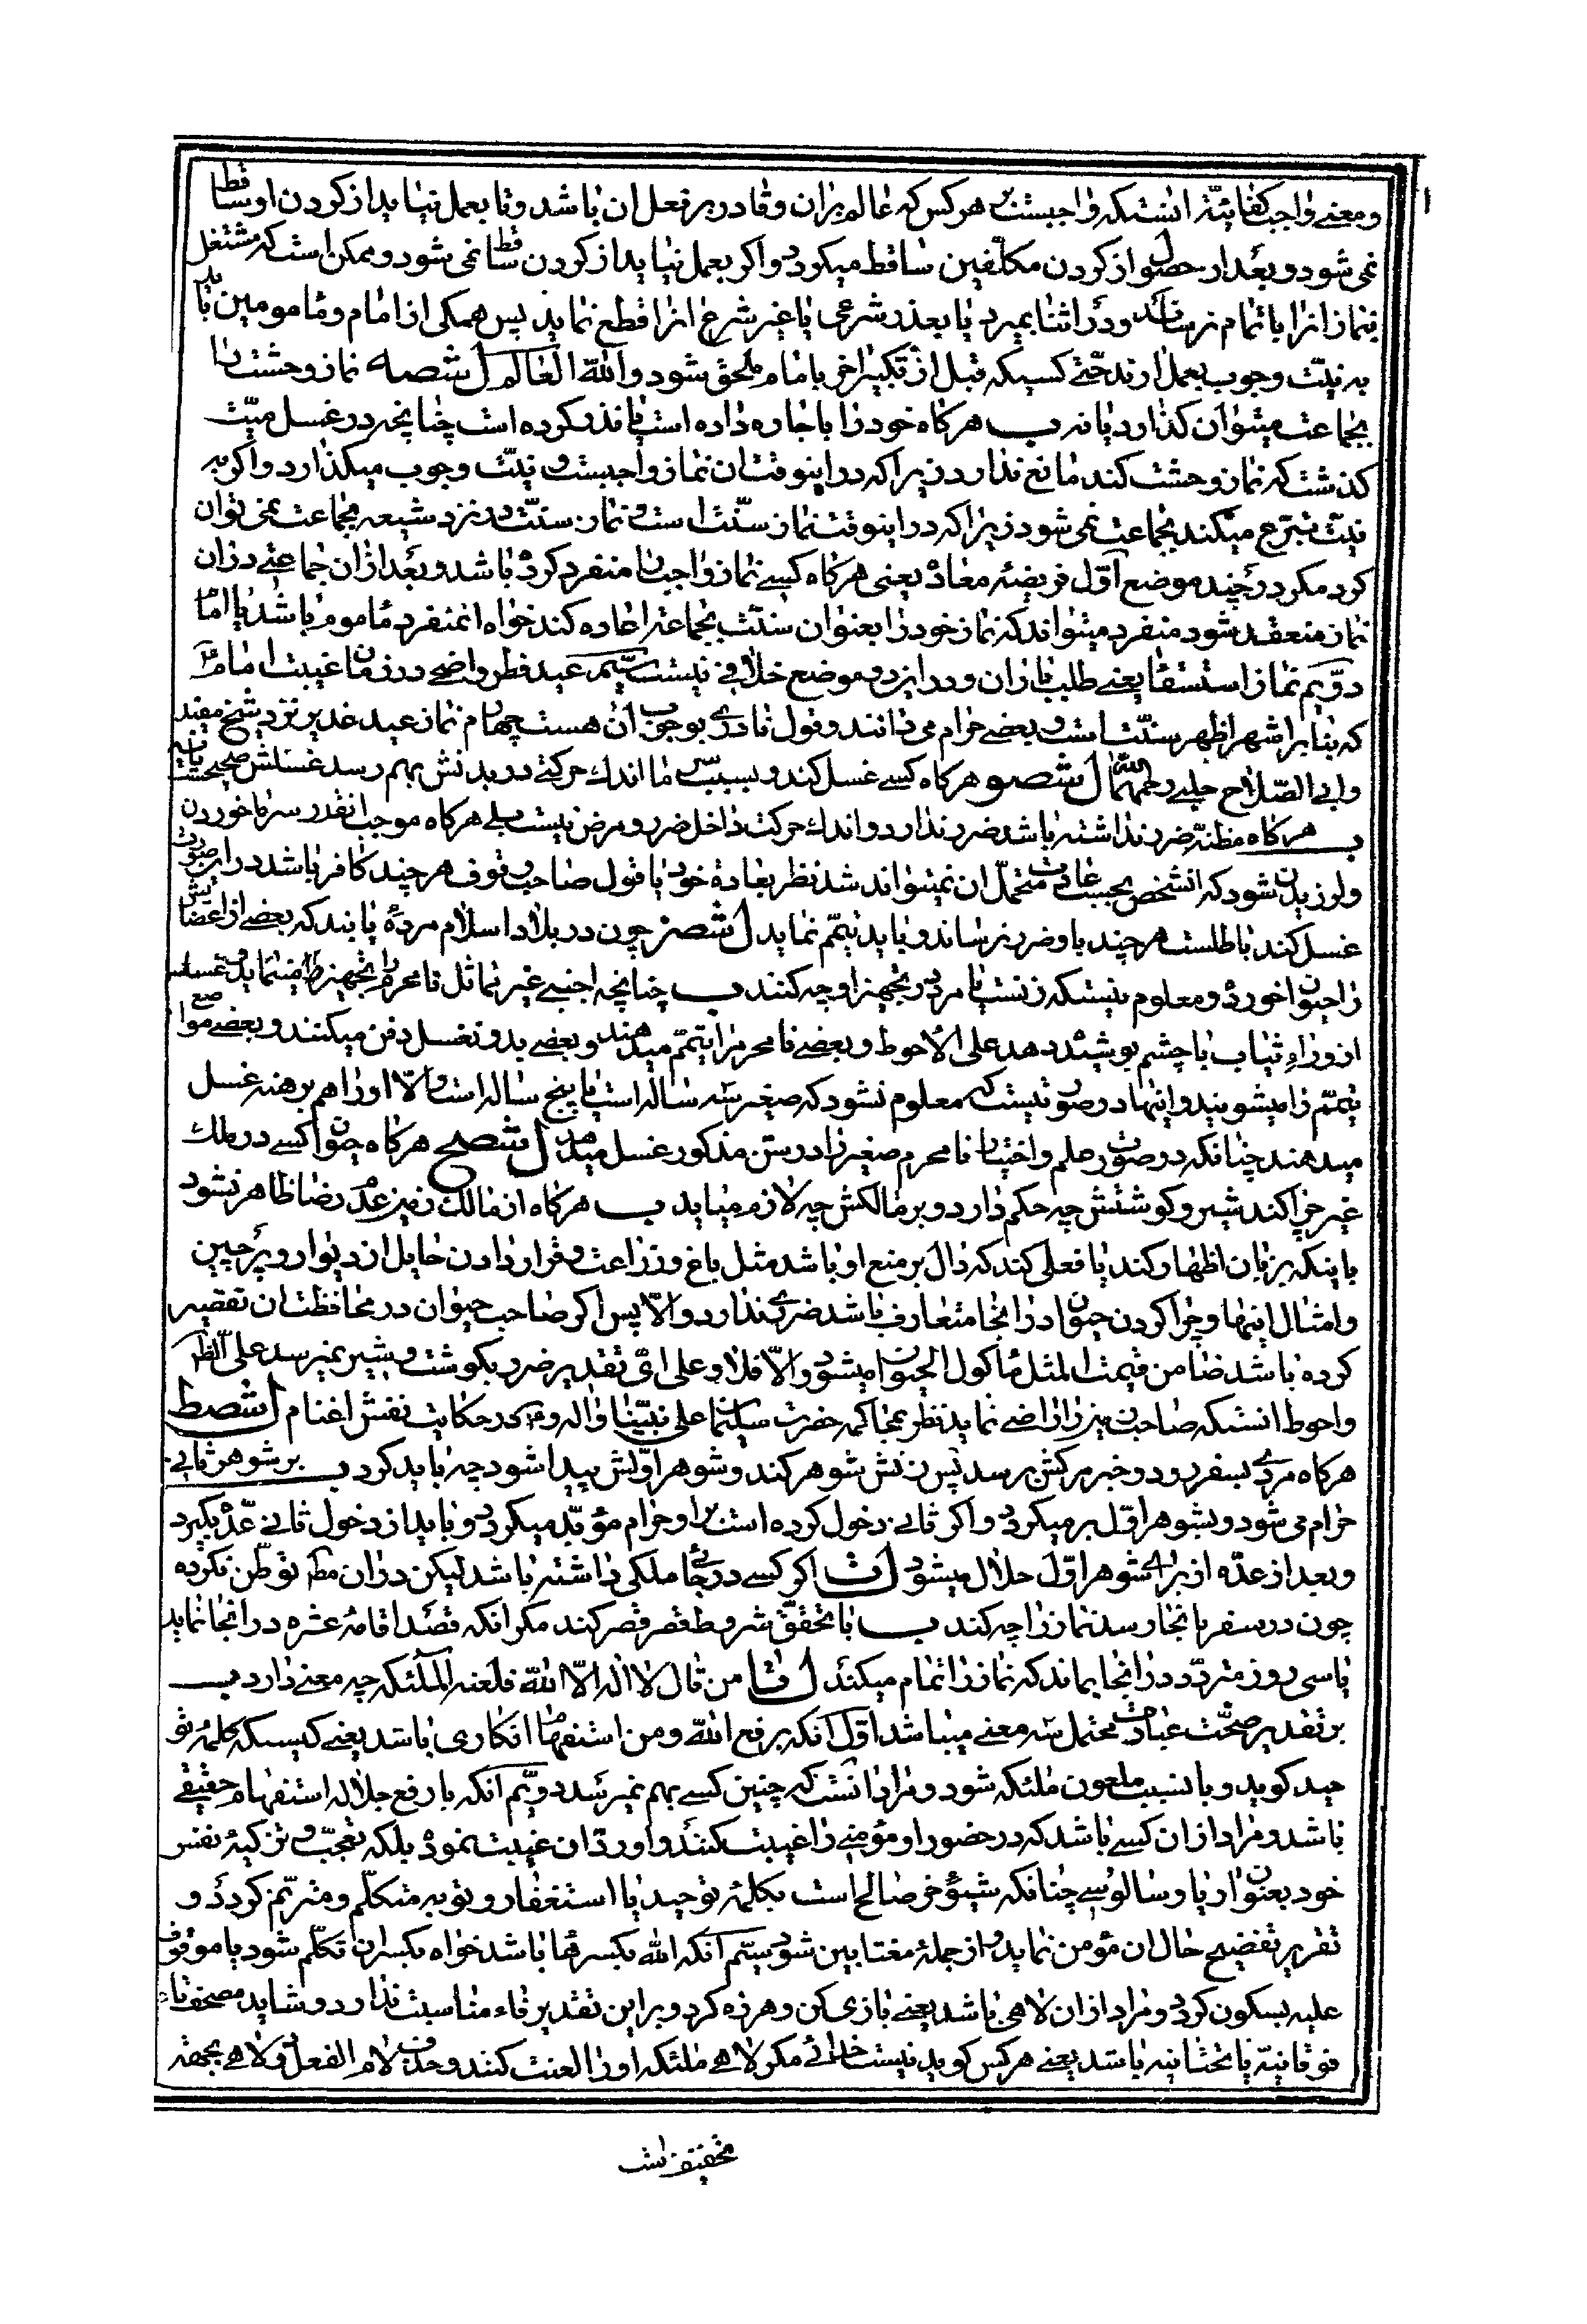 و معنی واجب کفائیه اینستکه واجبست بر هر کس که عالم بران و قادر بر فعل ان باشد و تا بعمل نیاید از کردن او ساقط
نمی شود و بعد از حصول از کردن مکلفین ساقط میکردد و اکر بعمل نیاید از کردن ساقط نمی شود و ممکن است که مشتغل
بنماز انرا باتمام نرساند و در اثنا بمیرد یا بعذر شرعی یا غیر شرع انرا قطع نماید پس همکی از امام و مامومین باید
به نیت وجوب بعمل ارند حتی کسیکه قبل از تکبیر اخر بامام ملحق شود والله العالم ل شصه نماز وحشت را
بجماعت میتوان کذارد یا نه ب هر کاه خود را باجاره داده است یا نذر کرده است چنانچه در غسل میت
کذشت که نماز وحشت کند مانع ندارد زیرا که در اینوقت ان نماز واجبست و نیت وجوب میکذارد و اکر به
نیت تبرع میکند بجماعت نمی شود زیرا که در اینوقت نماز سنت است و نماز سنت در نزد شیعه بجماعت نمی توان
کرد مکر در چند موضع اول فریضهٔ معاده یعنی هر کاه کسی نماز واجب را منفرد کرده باشد و بعد ازان جماعتی دران
نماز منعقد شود منفرد میتواند که نماز خود را بعنوان سنت بجماعت اعاده کند خواه انمنفرد ماموم باشد یا امام
دویم نماز استسقا یعنی طلب باران و در این دو موضع خلافی نیست سیم عید فطر و اضحی در زمان غیبت امام ع
که بنا بر اشهر اظهر سنت است و بعضی حرام می دانند و قول نادری بوجوب ان هست چهارم نماز عید غدیر نزد شیخ مفید
و ابی الصلاح حلبی رحمهما الله ل شصو هر کاه کسی غسل کند و بسبب سرما اندک حرکتی در بدنش بهم رسد غسلش صحیحست یا نه
ب هر کاه مظنهٔ ضرر نداشته باشد ضرر ندارد و اندک حرکت داخل ضرر و مرض نیست بلی هر کاه موجب انقدر سرما خوردن
و لرزیدن شود که انشخص بحسب عادت متحمل ان نمیتواند شد نظر بعادة خود یا قول صاحب وقوف هر چند کافر باشد در اینصورت
غسل کند باطلست هر چند باو ضرر نرساند و باید تیمم نماید ل شصز چون در بلاد اسلام مردهٔ یابند که بعضی از اعضایش
را حیوان خورده و معلوم نیستکه زنست یا مرد در تجهیز او چه کنند ب چنانچه اجنبی غیر مماثل نامحرم را تجهیز مینماید و غسلش
از وراء ثیاب با چشم پوشیده دهد علی الاحوط و بعضی نامحرم را تیمم میدهند و بعضی بدون غسل دفن میکنند و بعضی مواضع
تیمم را میشویند و اینها در صورتیست که معلوم نشود که صغیر سه ساله است یا پنج ساله است و الا او را هم برهنه غسل
میدهند چنانکه در صورت علم و اختیار نامحرم صغیر را در سن مذکور غسل میدهد ل شصح هر کاه حیوان کسی در ملک
غیر چرا کند شیر و کوشتش چه حکم دارد و بر مالکش چه لازم میاید ب هر کاه از مالک زمین عدم رضا ظاهر نشود
باینکه بزبان اظهار کند یا فعلی کند که دال بر منع او باشد مثل باغ و زراعت و قرار دادن حایل از دیوار و پرچین
و امثال اینها و چرا کردن حیوان در انجا متعارف باشد ضرری ندارد و الا پس اکر صاحب حیوان در محافظت ان تقصیر
کرده باشد ضامن قیمت المثل ماکول الحیوان میشود و الا فلا و علی ای تقدیر ضرر بکوشت و شیر نمیرسد علی الظاهر
و احوط انستکه صاحب زمین را راضی نماید نظر بمحاکمه حضرت سلیمان علی نبینا و اله و ع در حکایت نفش اغنام ل شصط
هر کاه مردی بسفر رود و خبر مرکش برسد پس زنش شوهر کند و شوهر اولش پیدا شود چه باید کرد ب بر شوهر ثانی
حرام می شود و بشوهر اول بر میکردد و اکر ثانی دخول کرده است بر او حرام مؤبد میکردد و باید از دخول ثانی عده بکیرد
و بعد از عده از برای شوهر اول حلال میشود ل ت اکر کسی در جائی ملکی داشته باشد لیکن دران مطلقا توطن نکرده
چون در سفر بانجا رسد نماز را چه کند ب با تحقق شروط قصر قصر کند مکر انکه قصد اقامهٔ عشره در انجا نماید
یا سی روز متردد در انجا بماند که نماز را تمام میکند ل تا من قال لا اله الا الله فلعنه الملئکه چه معنی دارد ب
بر تقدیر صحت عبارت محتمل سه معنی میباشد اول انکه برفع الله و من استفهام انکاری باشد یعنی کیستکه کلمهٔ تو
حید کوید و باینسبب ملعون ملئکه شود و مراد انست که چنین کسی بهم نمیرسد دویم انکه با رفع جلاله استفهام حقیقی
باشد و مراد ازان کسی باشد که در حضور او مؤمنی را غیبت کنند و او رد ان غیبت ننموده بلکه تعجب و تزکیهٔ نفس
خود بعنوان ریا و سالوسی چنانکه شیوهٔ غیر صالح است بکلمهٔ توحید یا استغفار و توبه متکلم و مترنم کردد و
تقریر تفضیح حال ان مؤمن نماید و از جملهٔ مغتابین شود سیم انکه الله بکسر ها باشد خواه بکسر ان تکلم شود یا موقوف
علیه بسکون کردد و مراد ازان لاهی باشد یعنی بازی کن و هرزه کرد و بر این تقدیر فاء مناسبت ندارد و شاید مصحف تاء
فوقانیه یا تحتانیه باشد یعنی هر کس کوید نیست خدائی مکر لاهی ملئکه او را لعنت کنند و حذف لام الفعل در لاهی بجهة
تخفیف است